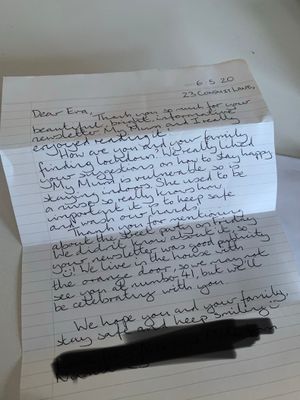 6.5.20
23
Dear Eva,
Thank you so much for your
beautiful, bright, informative
newsletter. My Mum and I really
enjoyed reading it!
How are you and your family
finding lockdown? I really liked
your suggestions on how to stay happy.
My Mum is vulnerable so we
stay indoors. She used to be
a nurse so really knows how
important it is to keep safe
and keep our
Thank you for mentioning
about the street party on Friday.
We didn't know about it, so
your newsletter was good publicity
! We live in the house with
the orange door, so we may not
see you at number 41, but we'll
be celebrating with you.
We hope you and your family
stay safe and keep smiling